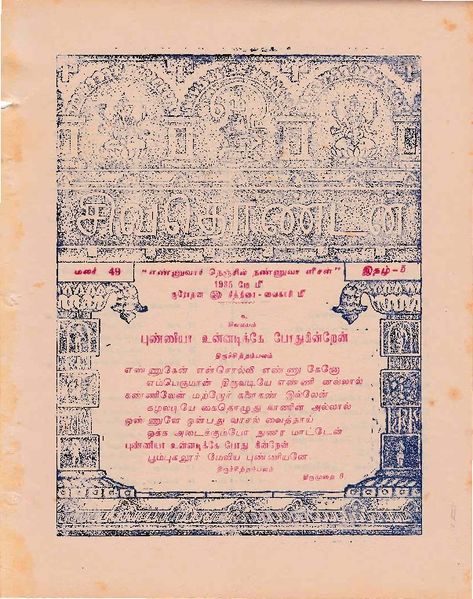 சிவதொண்டன்
மலர் 49
"எண்ணுவார் நெஞ்சில் நண்ணுவா னீசன்"
இதழ் - 5
1985 மே மீ
குரோதன ௵ சித்திரை - வைகாசி மீ
உ
சிவமயம்
புண்ணியா உன்னடிக்கே போதுகின்றேன்
திருச்சிற்றம்பலம்
எண்ணுகேன் என்சொல்லி எண்ணு கேனோ
எம்பெருமான் திருவடியே எண்ணி னல்லால்
கண்ணிலேன் மற்றோர் களைகண் இல்லேன்
கழலடியே கைதொழுது காணின் அல்லால்
ஒண்ணுளே ஒன்பது வாசல் வைத்தாய்
ஒக்க அடைக்கும்போ துணர மாட்டேன்
புண்ணியா உன்னடிக்கே போது கின்றேன்
பூம்புகலூர் மேவிய புண்ணியனே
திருச்சிற்றம்பலம்
திருமுறை 6